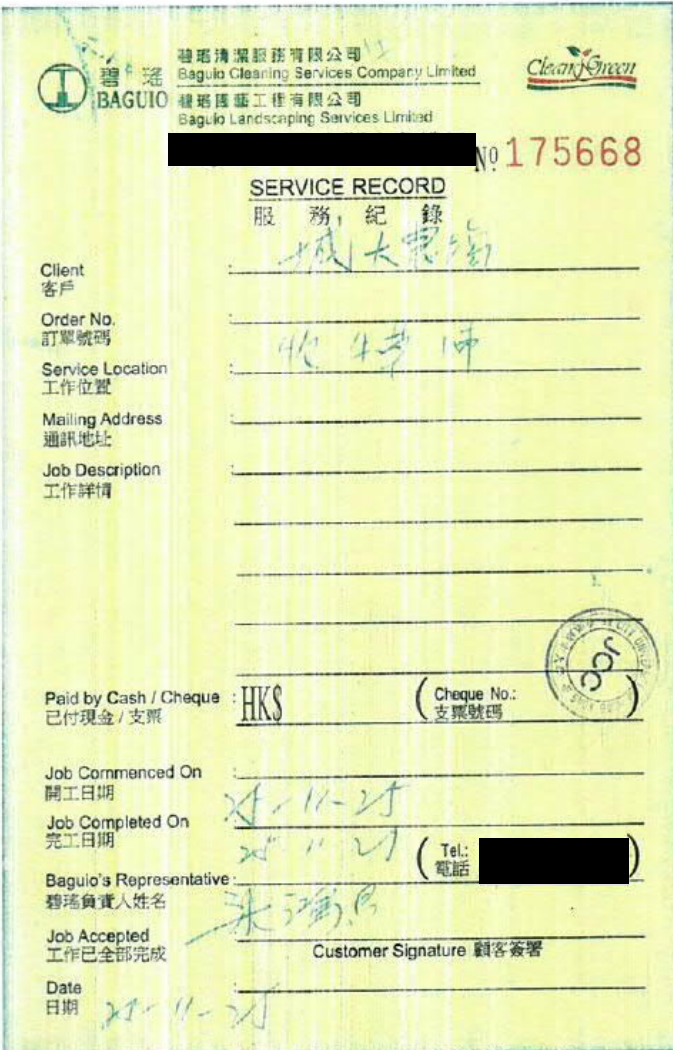 碧瑤清潔服務有限公司
碧瑤 Baguio Cleaning Services Company Limited
Clean & Green
BAGUIO 碧瑤園藝工程有限公司
Baguio Landscaping Services Limited
Nº 175668
SERVICE RECORD
服務紀錄
城大
Client :
客戶
Order No. :
訂單號碼
Service Location :
工作位置
Mailing Address :
通訊地址
Job Description :
工作詳情
JCC
Paid by Cash / Cheque : HK$ ( Cheque No.: )
已付現金 / 支票 支票號碼
Job Commenced On :
開工日期
25-11-25
Job Completed On :
完工日期
25 11 25 ( Tel.: )
電話
Baguio's Representative :
碧瑤負責人姓名
Job Accepted
工作已全部完成 Customer Signature 顧客簽署
Date
日期 25-11-25